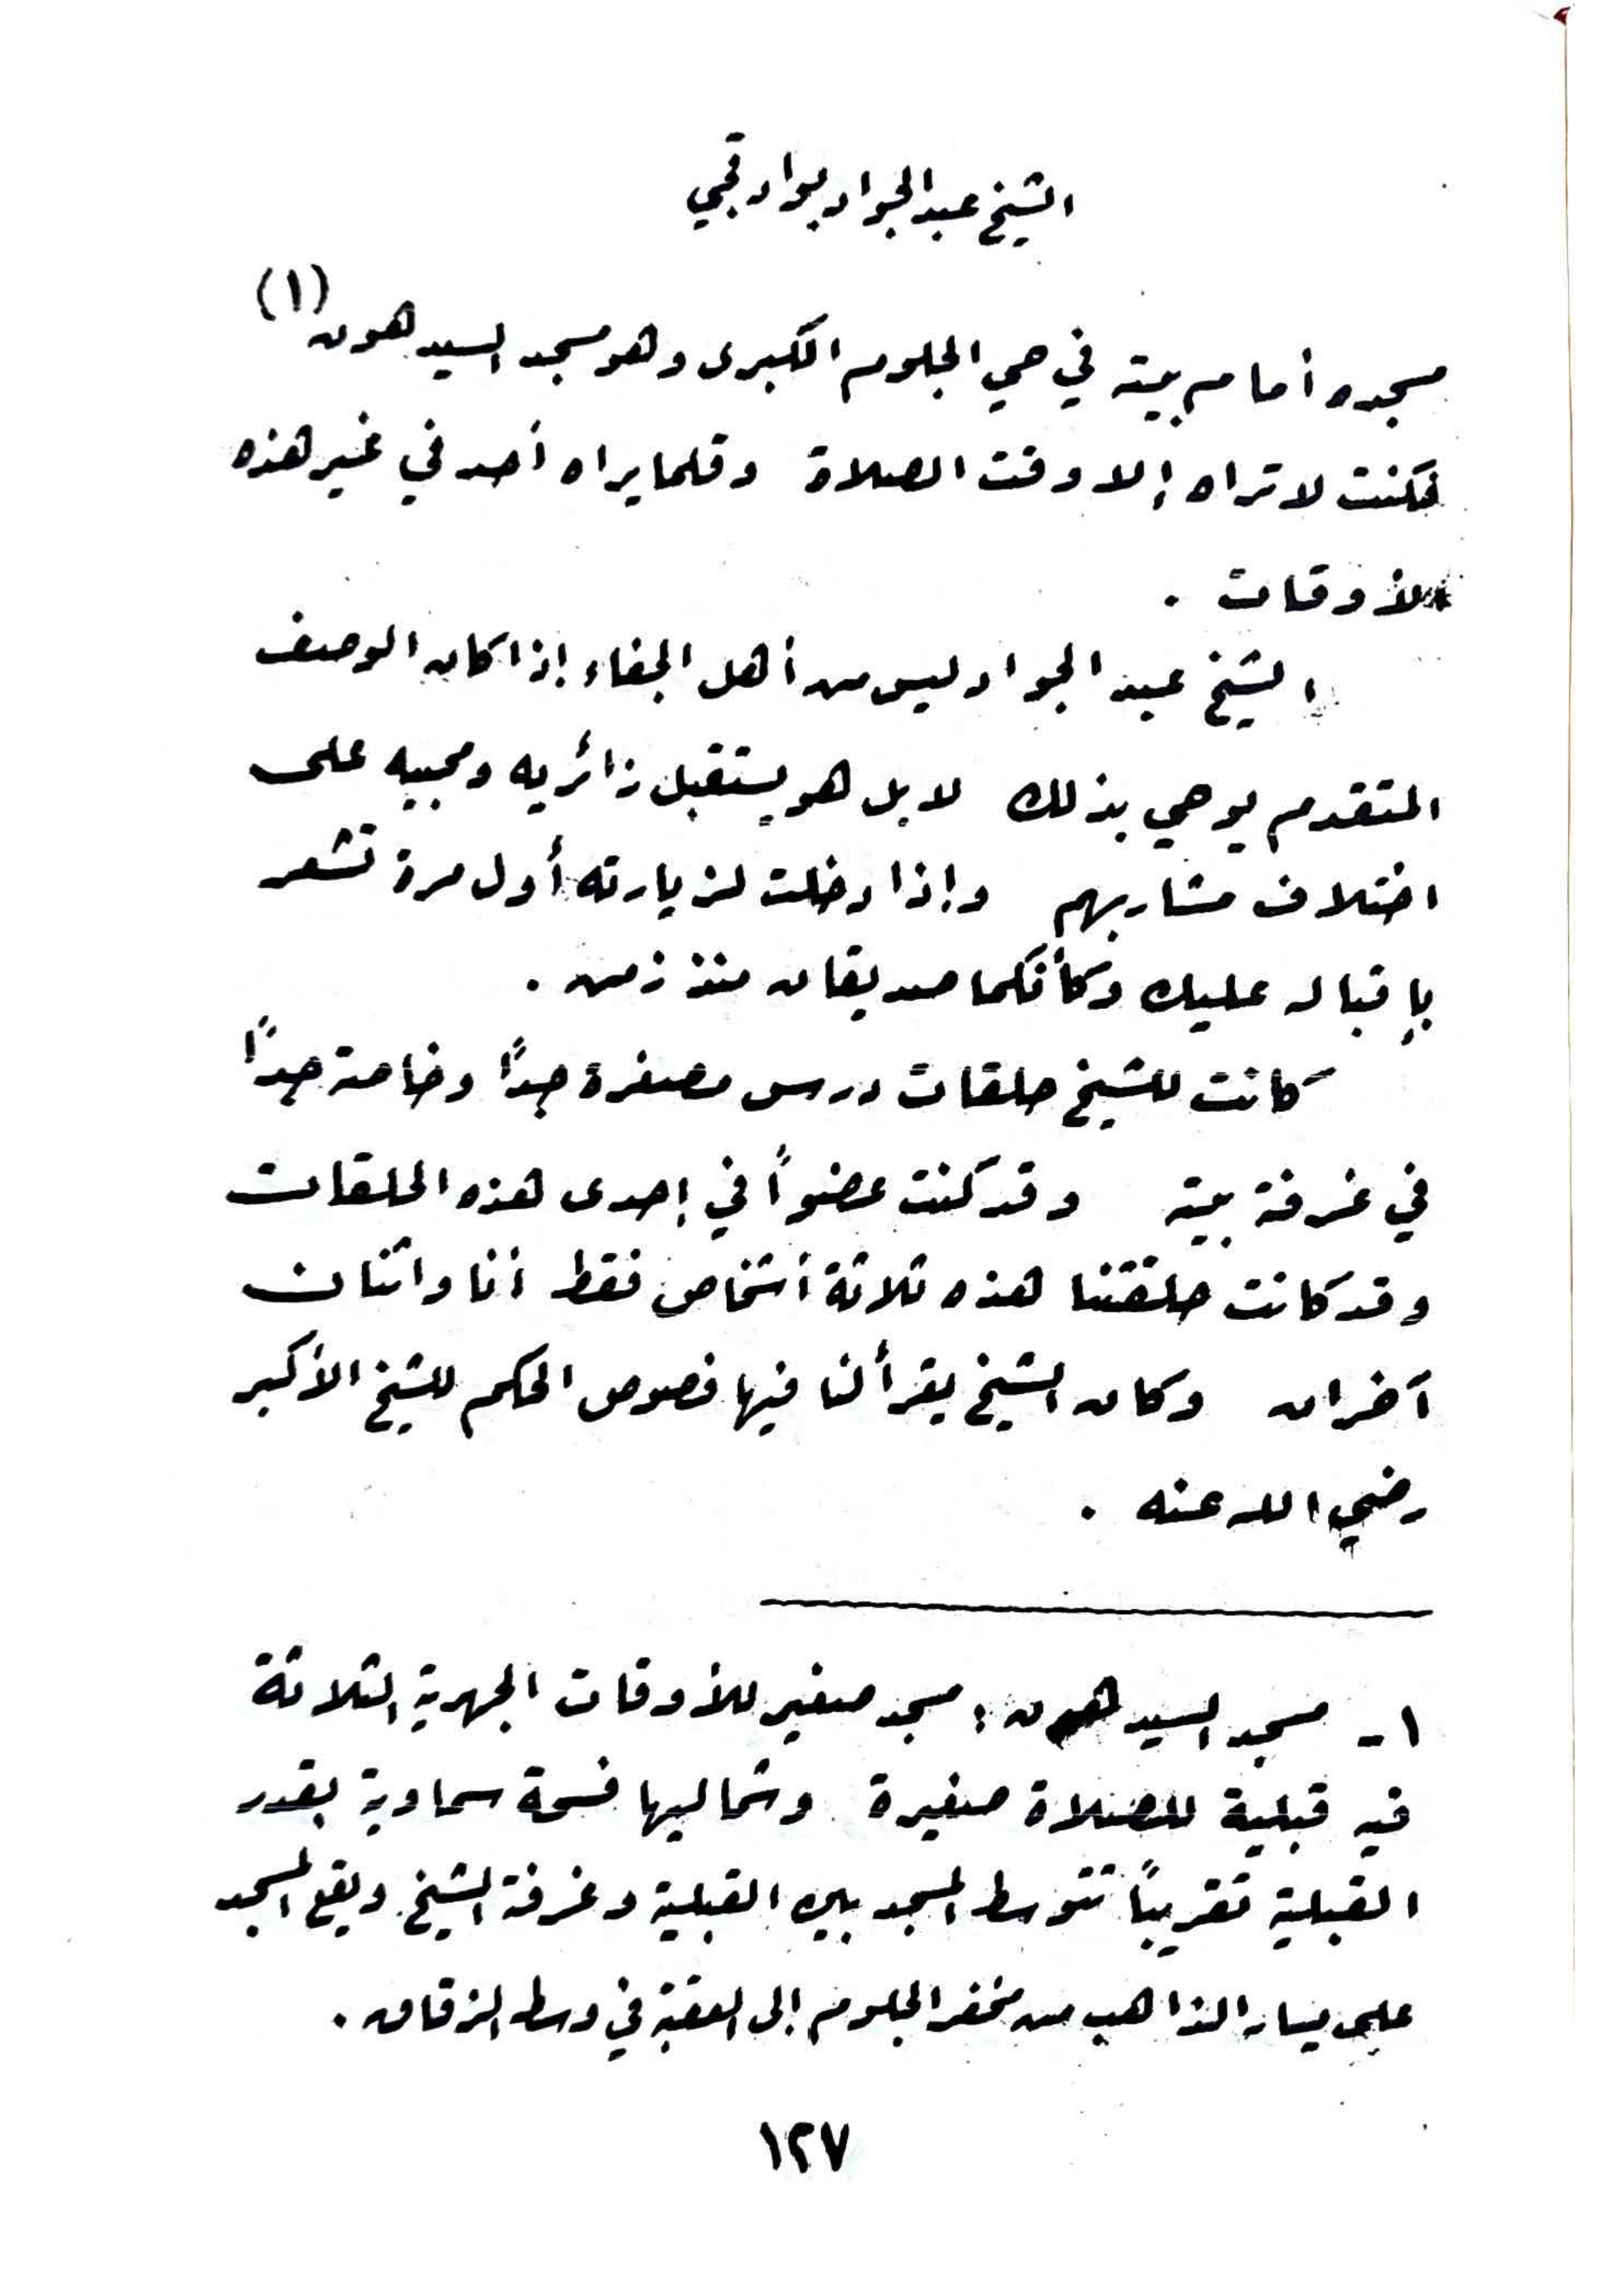 الشيخ عبد الجواد بوادقجي
مسجده أمام بيته في حي الجلوم الكبرى وهو مسجد السيد هون (١)
فكنت لا تراه إلا وقت الصلاة وقلما يراه أحد في غير هذه
الأوقات .
الشيخ عبد الجواد ليس من أهل الجفاء إذا كان الوصف
المتقدم يوحي بذلك لا بل هو يستقبل زائريه ومحبيه على
اختلاف مشاربهم وإذا دخلت لزيارته أول مرة تشعر
بإقباله عليك وكأنكما صديقان منذ زمن .
كانت للشيخ حلقات درس مصغرة جداً وخاصة جداً
في غرفة بيته وقد كنت عضواً في إحدى هذه الحلقات
وقد كانت حلقتنا هذه ثلاثة أشخاص فقط أنا واثنان
آخران وكان الشيخ يقرأ لنا فيها فصوص الحكم للشيخ الأكبر
رضي الله عنه .
١ - مسجد السيد هون : مسجد صغير للأوقات الجهرية الثلاثة
فيه قبلية للصلاة صغيرة وشماليها فسحة سماوية بقدر
القبلية تقريباً تتوسط المسجد بين القبلية وغرفة الشيخ ويقع المسجد
على يسار الذاهب من مخفر الجلوم إلى العقبة في وسط الزقاق .
١٢٧